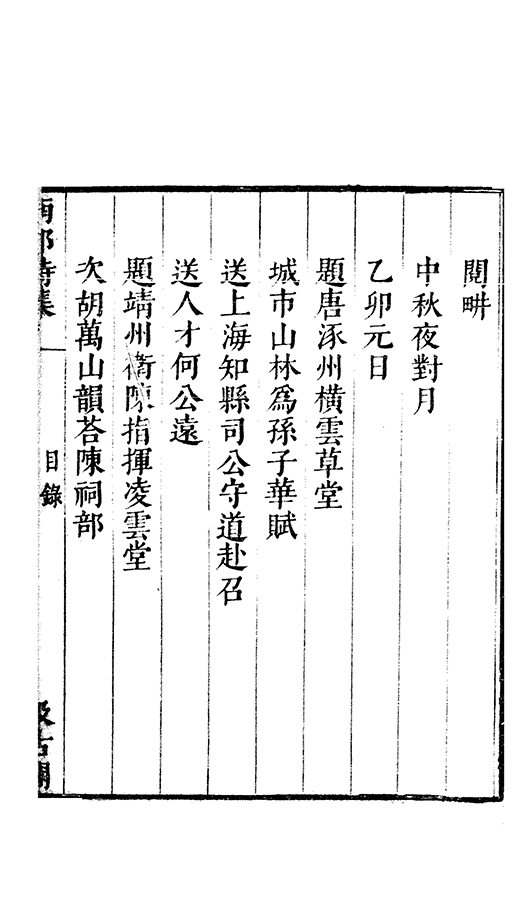 閱畊
中秋夜對月
乙卯元日
題唐涿州橫雲草堂
城市山林爲孫子華賦
送上海知縣司公守道赴召
送人才何公遠
題靖州衛陳指揮凌雲堂
次胡萬山韻荅陳祠部
目錄